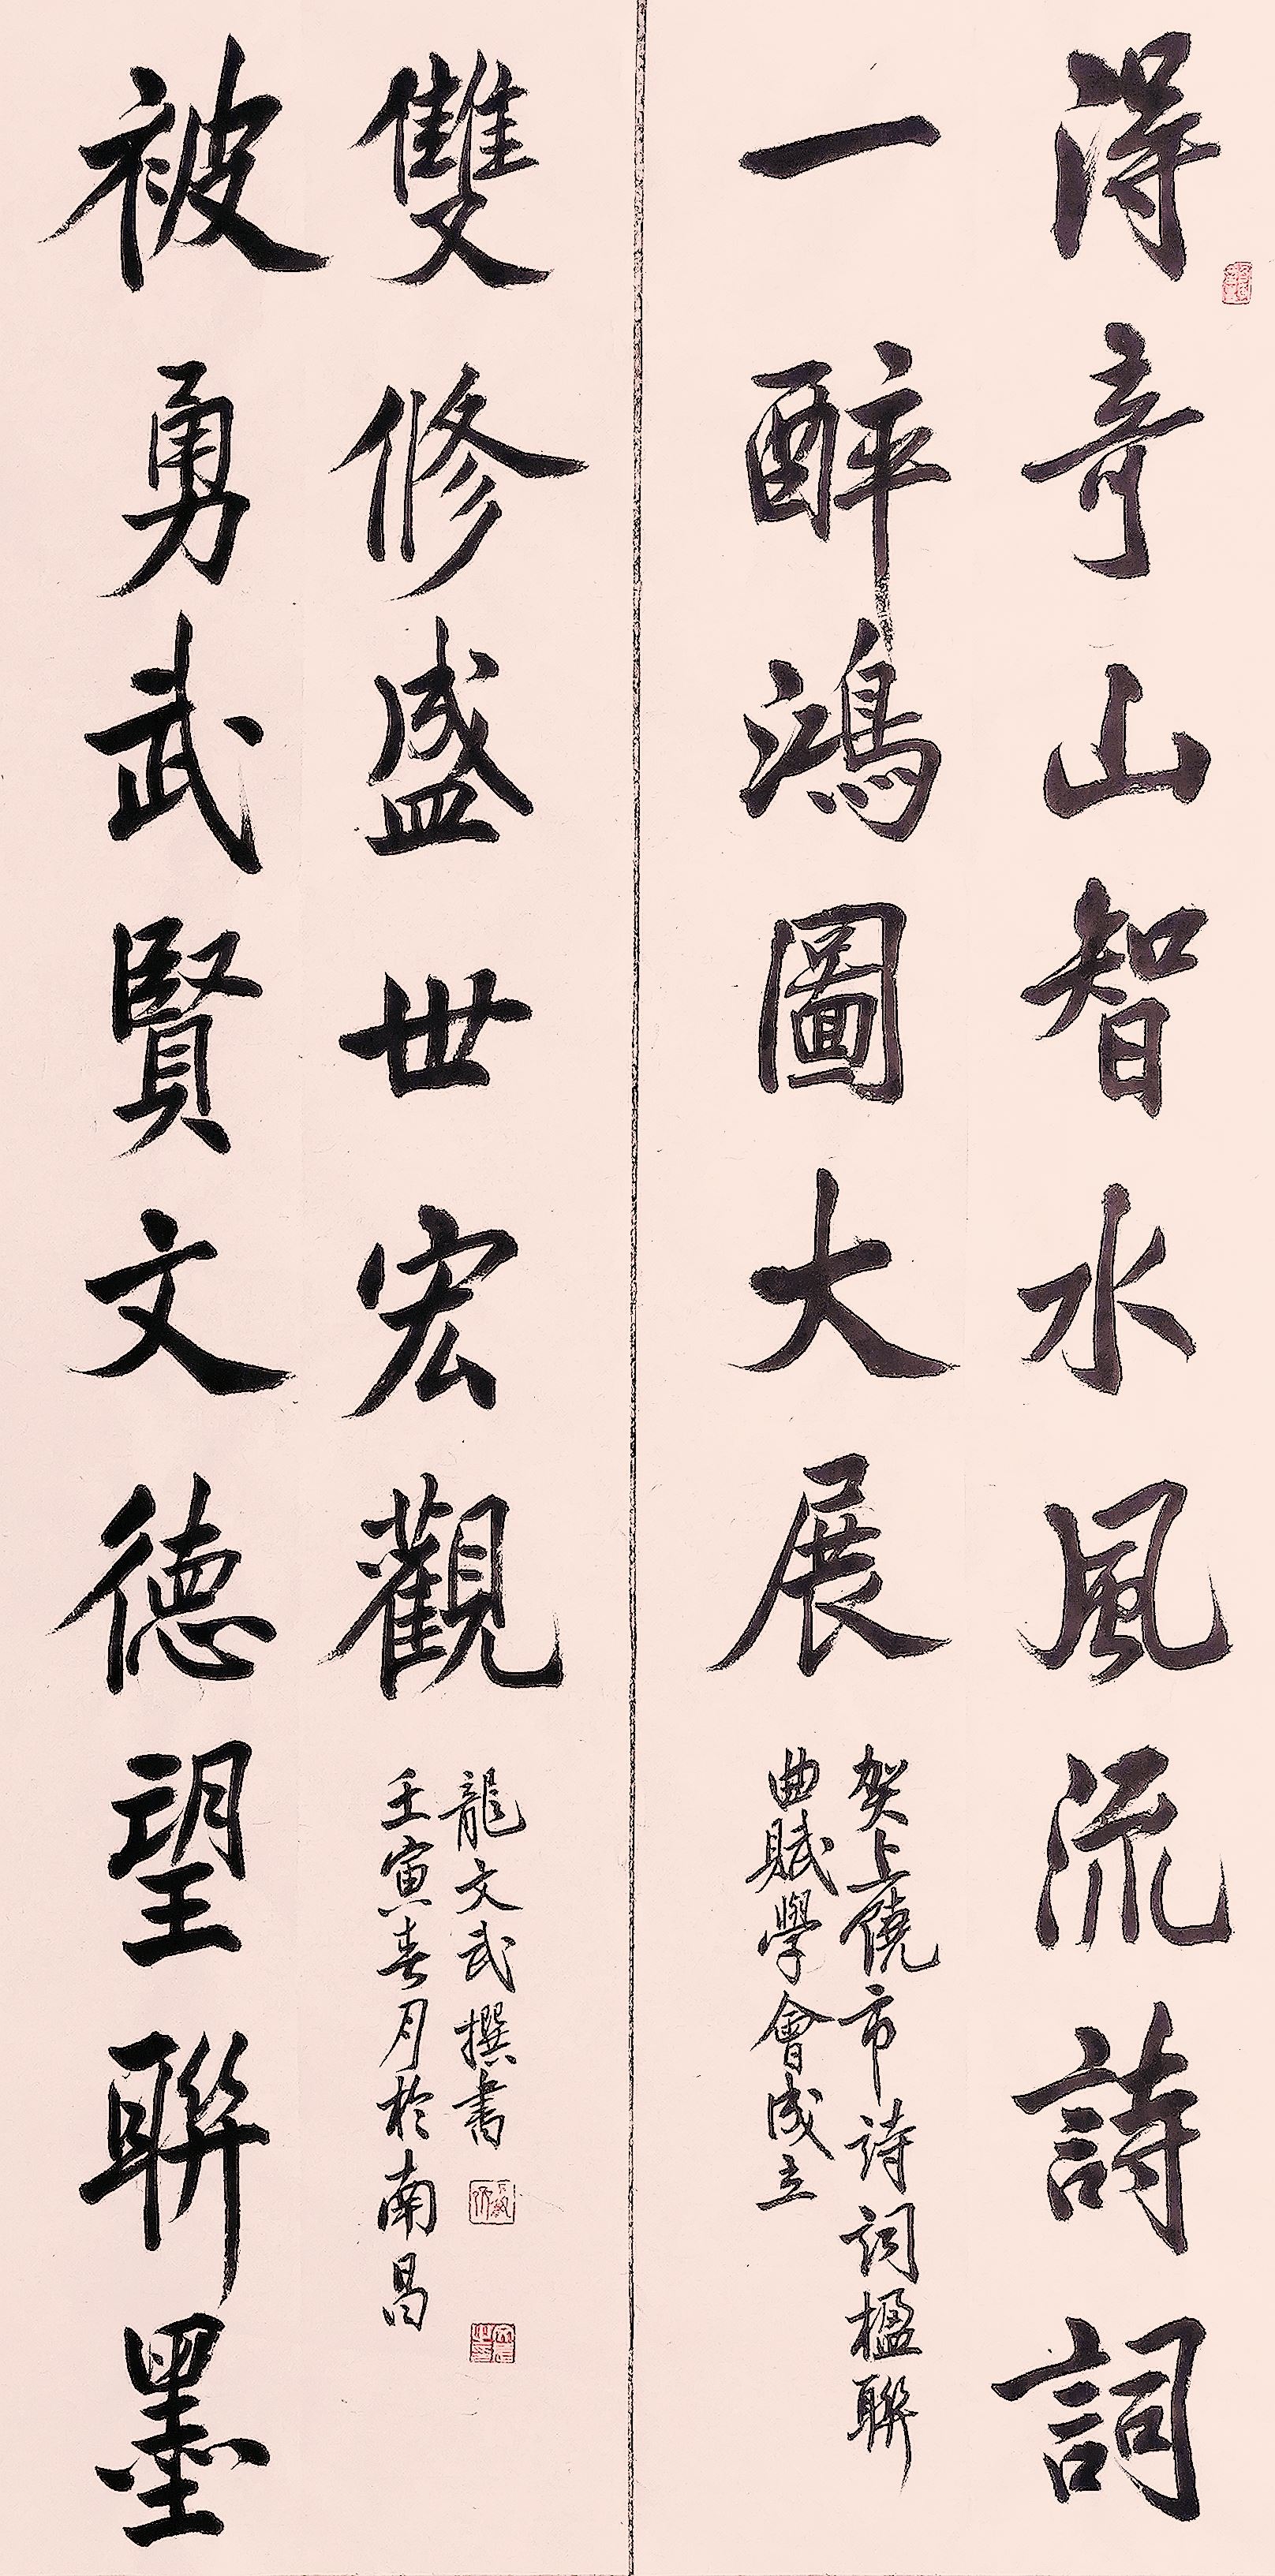 得奇山智水風流詩詞
一醉鴻圖大展
賀上饒市詩詞楹聯
曲賦學會成立
被勇武賢文德望聯墨
雙修盛世宏觀
龍文武撰書
壬寅春月於南昌